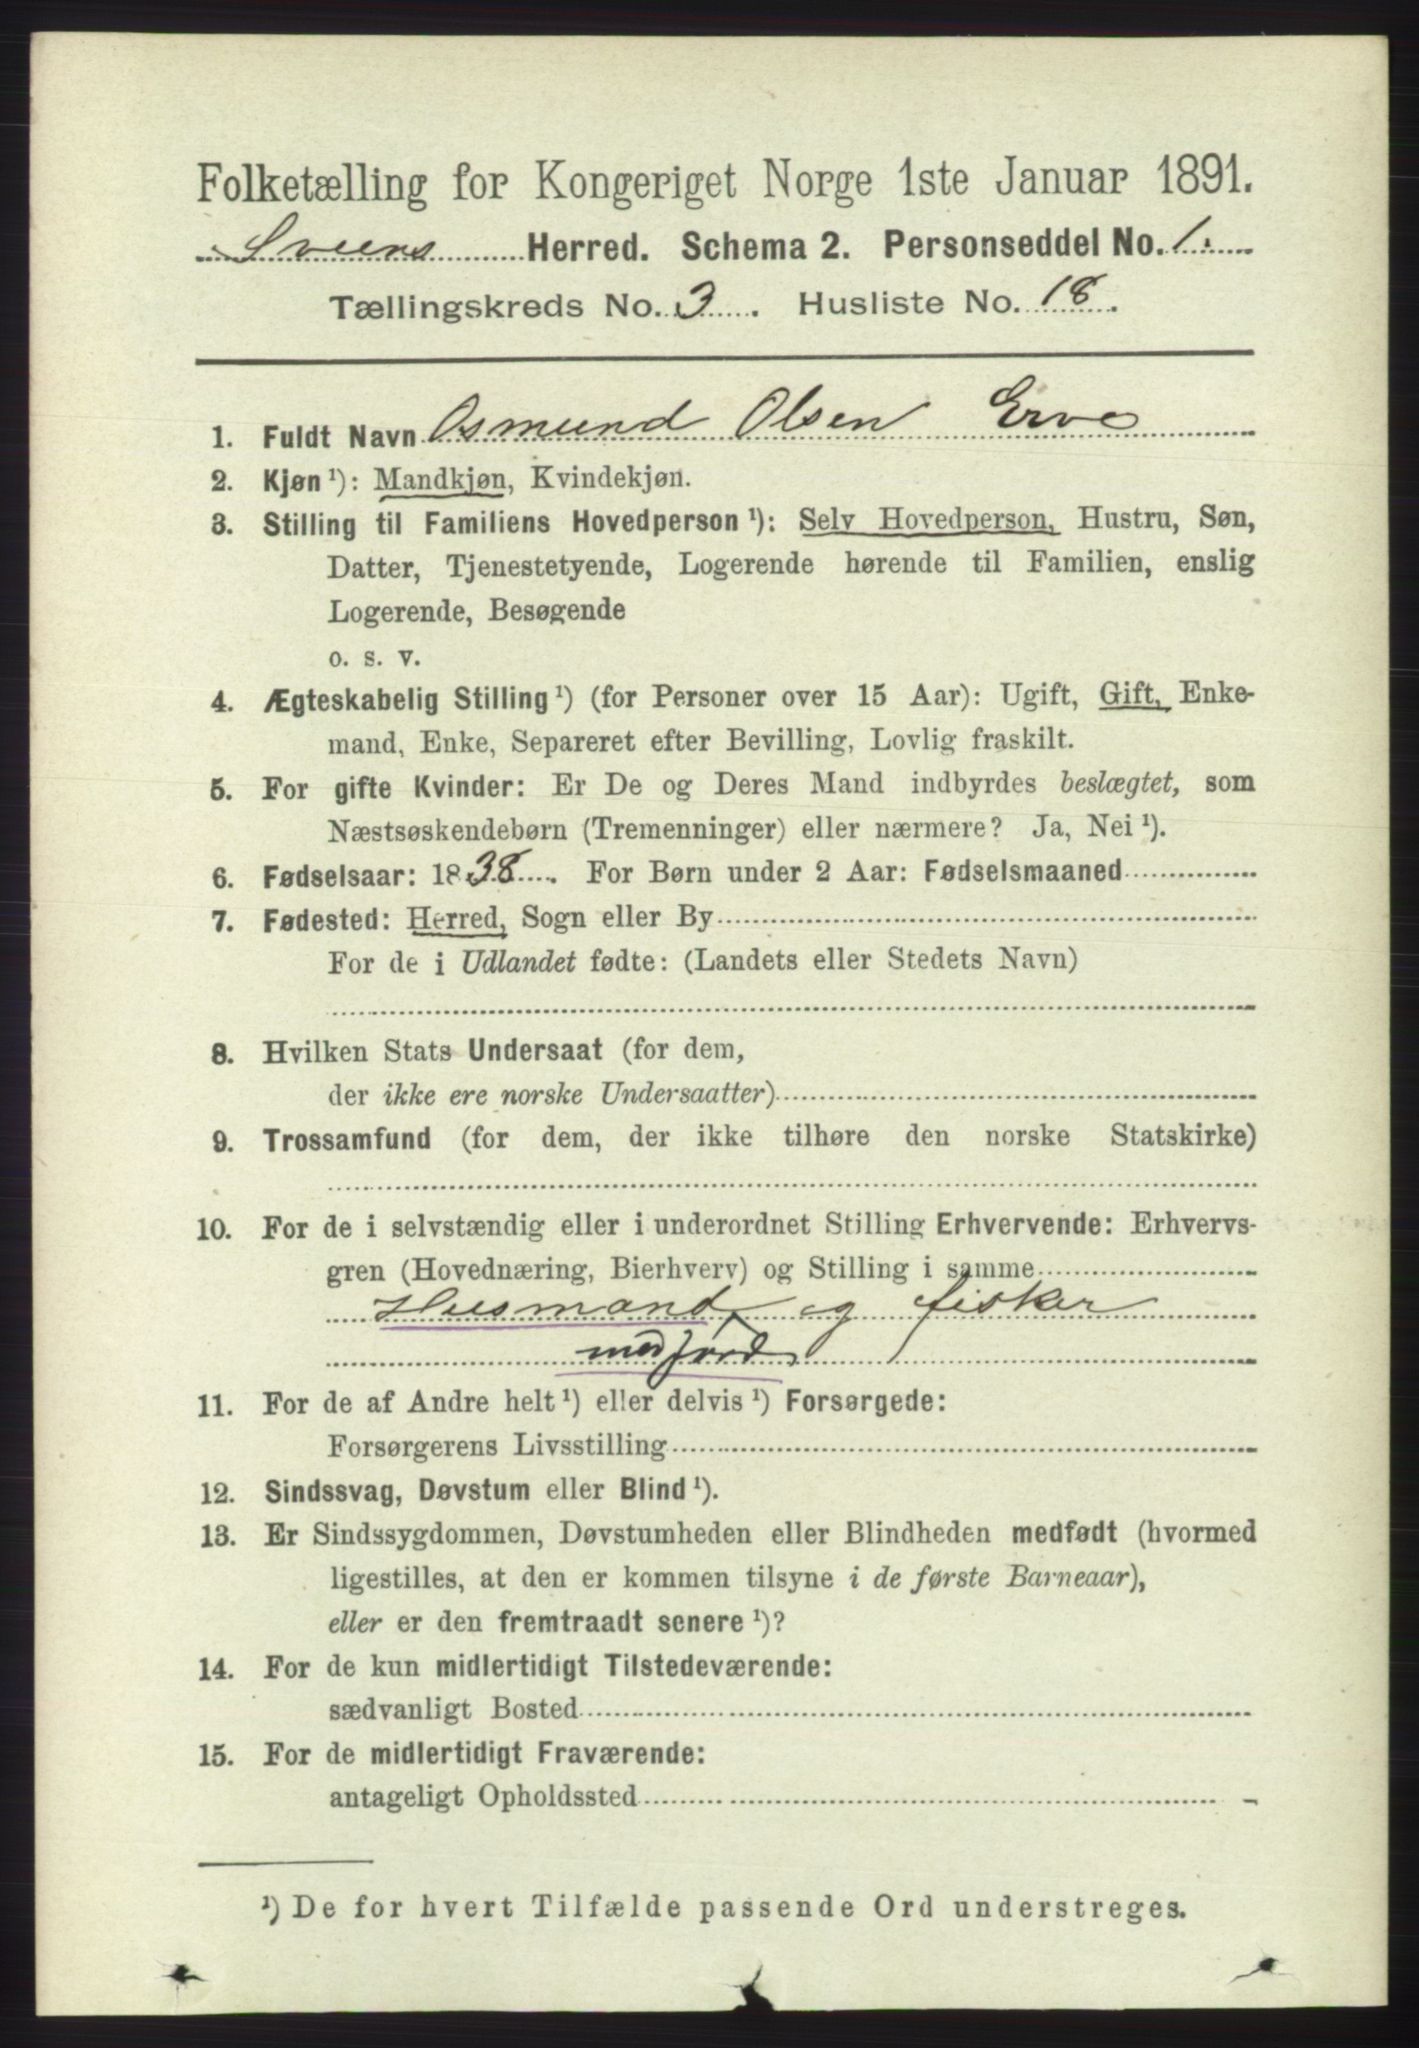 Folketælling for Kongeriget Norge 1ste Januar 1891.
Sveens Herred. Schema 2. Personseddel No. 1.
Tællingskreds No. 3. Husliste No. 18.
1. Fuldt Navn Osmund Olsen Erve
2. Kjøn ¹): Mandkjøn, Kvindekjøn.
3. Stilling til Familiens Hovedperson ¹): Selv Hovedperson, Hustru, Søn,
Datter, Tjenestetyende, Logerende hørende til Familien, enslig
Logerende, Besøgende
o. s. v.
4. Ægteskabelig Stilling ¹) (for Personer over 15 Aar): Ugift, Gift, Enke-
mand, Enke, Separeret efter Bevilling, Lovlig fraskilt.
5. For gifte Kvinder: Er De og Deres Mand indbyrdes beslægtet, som
Næstsøskendebørn (Tremenninger) eller nærmere? Ja, Nei ¹).
6. Fødselsaar: 1838. For Børn under 2 Aar: Fødselsmaaned
7. Fødested: Herred, Sogn eller By
For de i Udlandet fødte: (Landets eller Stedets Navn)
8. Hvilken Stats Undersaat (for dem,
der ikke ere norske Undersaatter)
9. Trossamfund (for dem, der ikke tilhøre den norske Statskirke)
10. For de i selvstændig eller i underordnet Stilling Erhvervende: Erhvervs-
gren (Hovednæring, Bierhverv) og Stilling i samme
Husmand og fisker
med jord
11. For de af Andre helt ¹) eller delvis ¹) Forsørgede:
Forsørgerens Livsstilling
12. Sindssvag, Døvstum eller Blind ¹).
13. Er Sindssygdommen, Døvstumheden eller Blindheden medfødt (hvormed
ligestilles, at den er kommen tilsyne i de første Barneaar),
eller er den fremtraadt senere ¹)?
14. For de kun midlertidigt Tilstedeværende:
sædvanligt Bosted
15. For de midlertidigt Fraværende:
antageligt Opholdssted
¹) De for hvert Tilfælde passende Ord understreges.